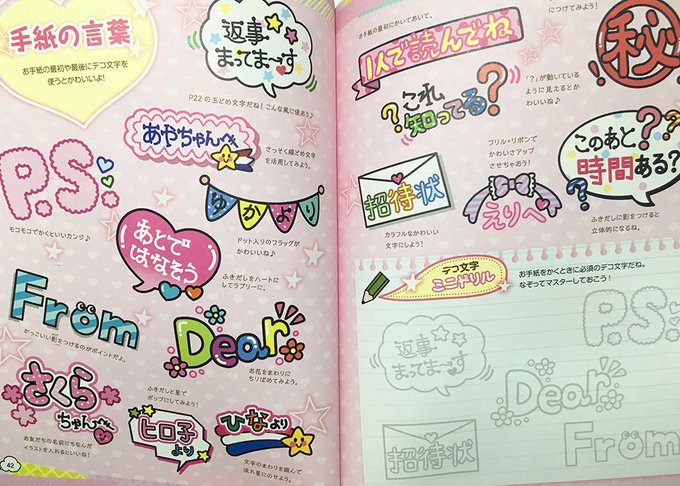 手紙の言葉
お手紙の最初や最後にデコ文字を
使うとかわいいよ!
返事
まってまーす
P22の玉どめ文字だね!こんな風に使おう♪
あやちゃんへ
さっそく線どめ文字
を活用してみよう。
P.S.
モコモコでかくといいカンジ♪
ゆかより
ドット入りのフラッグが
かわいいね♪
あとで
はなそう
ふきだしをハートに
してラブリーに。
From
かっこいい影をつけるのがポイントだよ。
Dear
お花をまわりに
ちりばめてみよう。
さくら
ちゃんへ
お友だちの名前にちなんだ
イラストを入れるといいね!
ふきだしと星で
ポップにしてみよう!
ヒロ子
より
ひなより
文字のまわりを囲んで
流れ星にのせよう。
42
お手紙の最初にかいておいて。
1人で読んでね
につけてみよう!
秘
これ
知ってる?
「?」が動いている
ように見えるとか
わいいね♪
招待状
カラフルなかわいい
文字にしよう!
フリル+リボンで
かわいさアップ
させちゃおう!
えりへ
このあと
時間ある?
ふきだしに影をつけると
立体的になるね。
デコ文字
ミニドリル
お手紙をかくときに必須のデコ文字だね。
なぞってマスターしておこう!
返事
まってまーす
P.S.
Dear
招待状
From